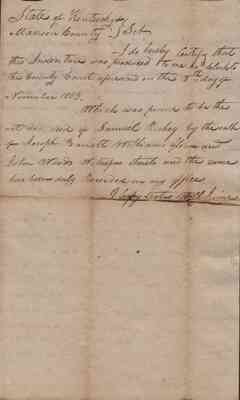 State of Kentucky
Mason County } Sct
I do hereby certify that
this Indenture was produced to me as clerk to
the County Court aforesaid on the 8th day of
November 1803.
Which was proven to be the
act and deed of Samuel by the oath
of Joseph Bennett William and
John Woods Witnesses thereto and the same
has been duly Recorded in my office